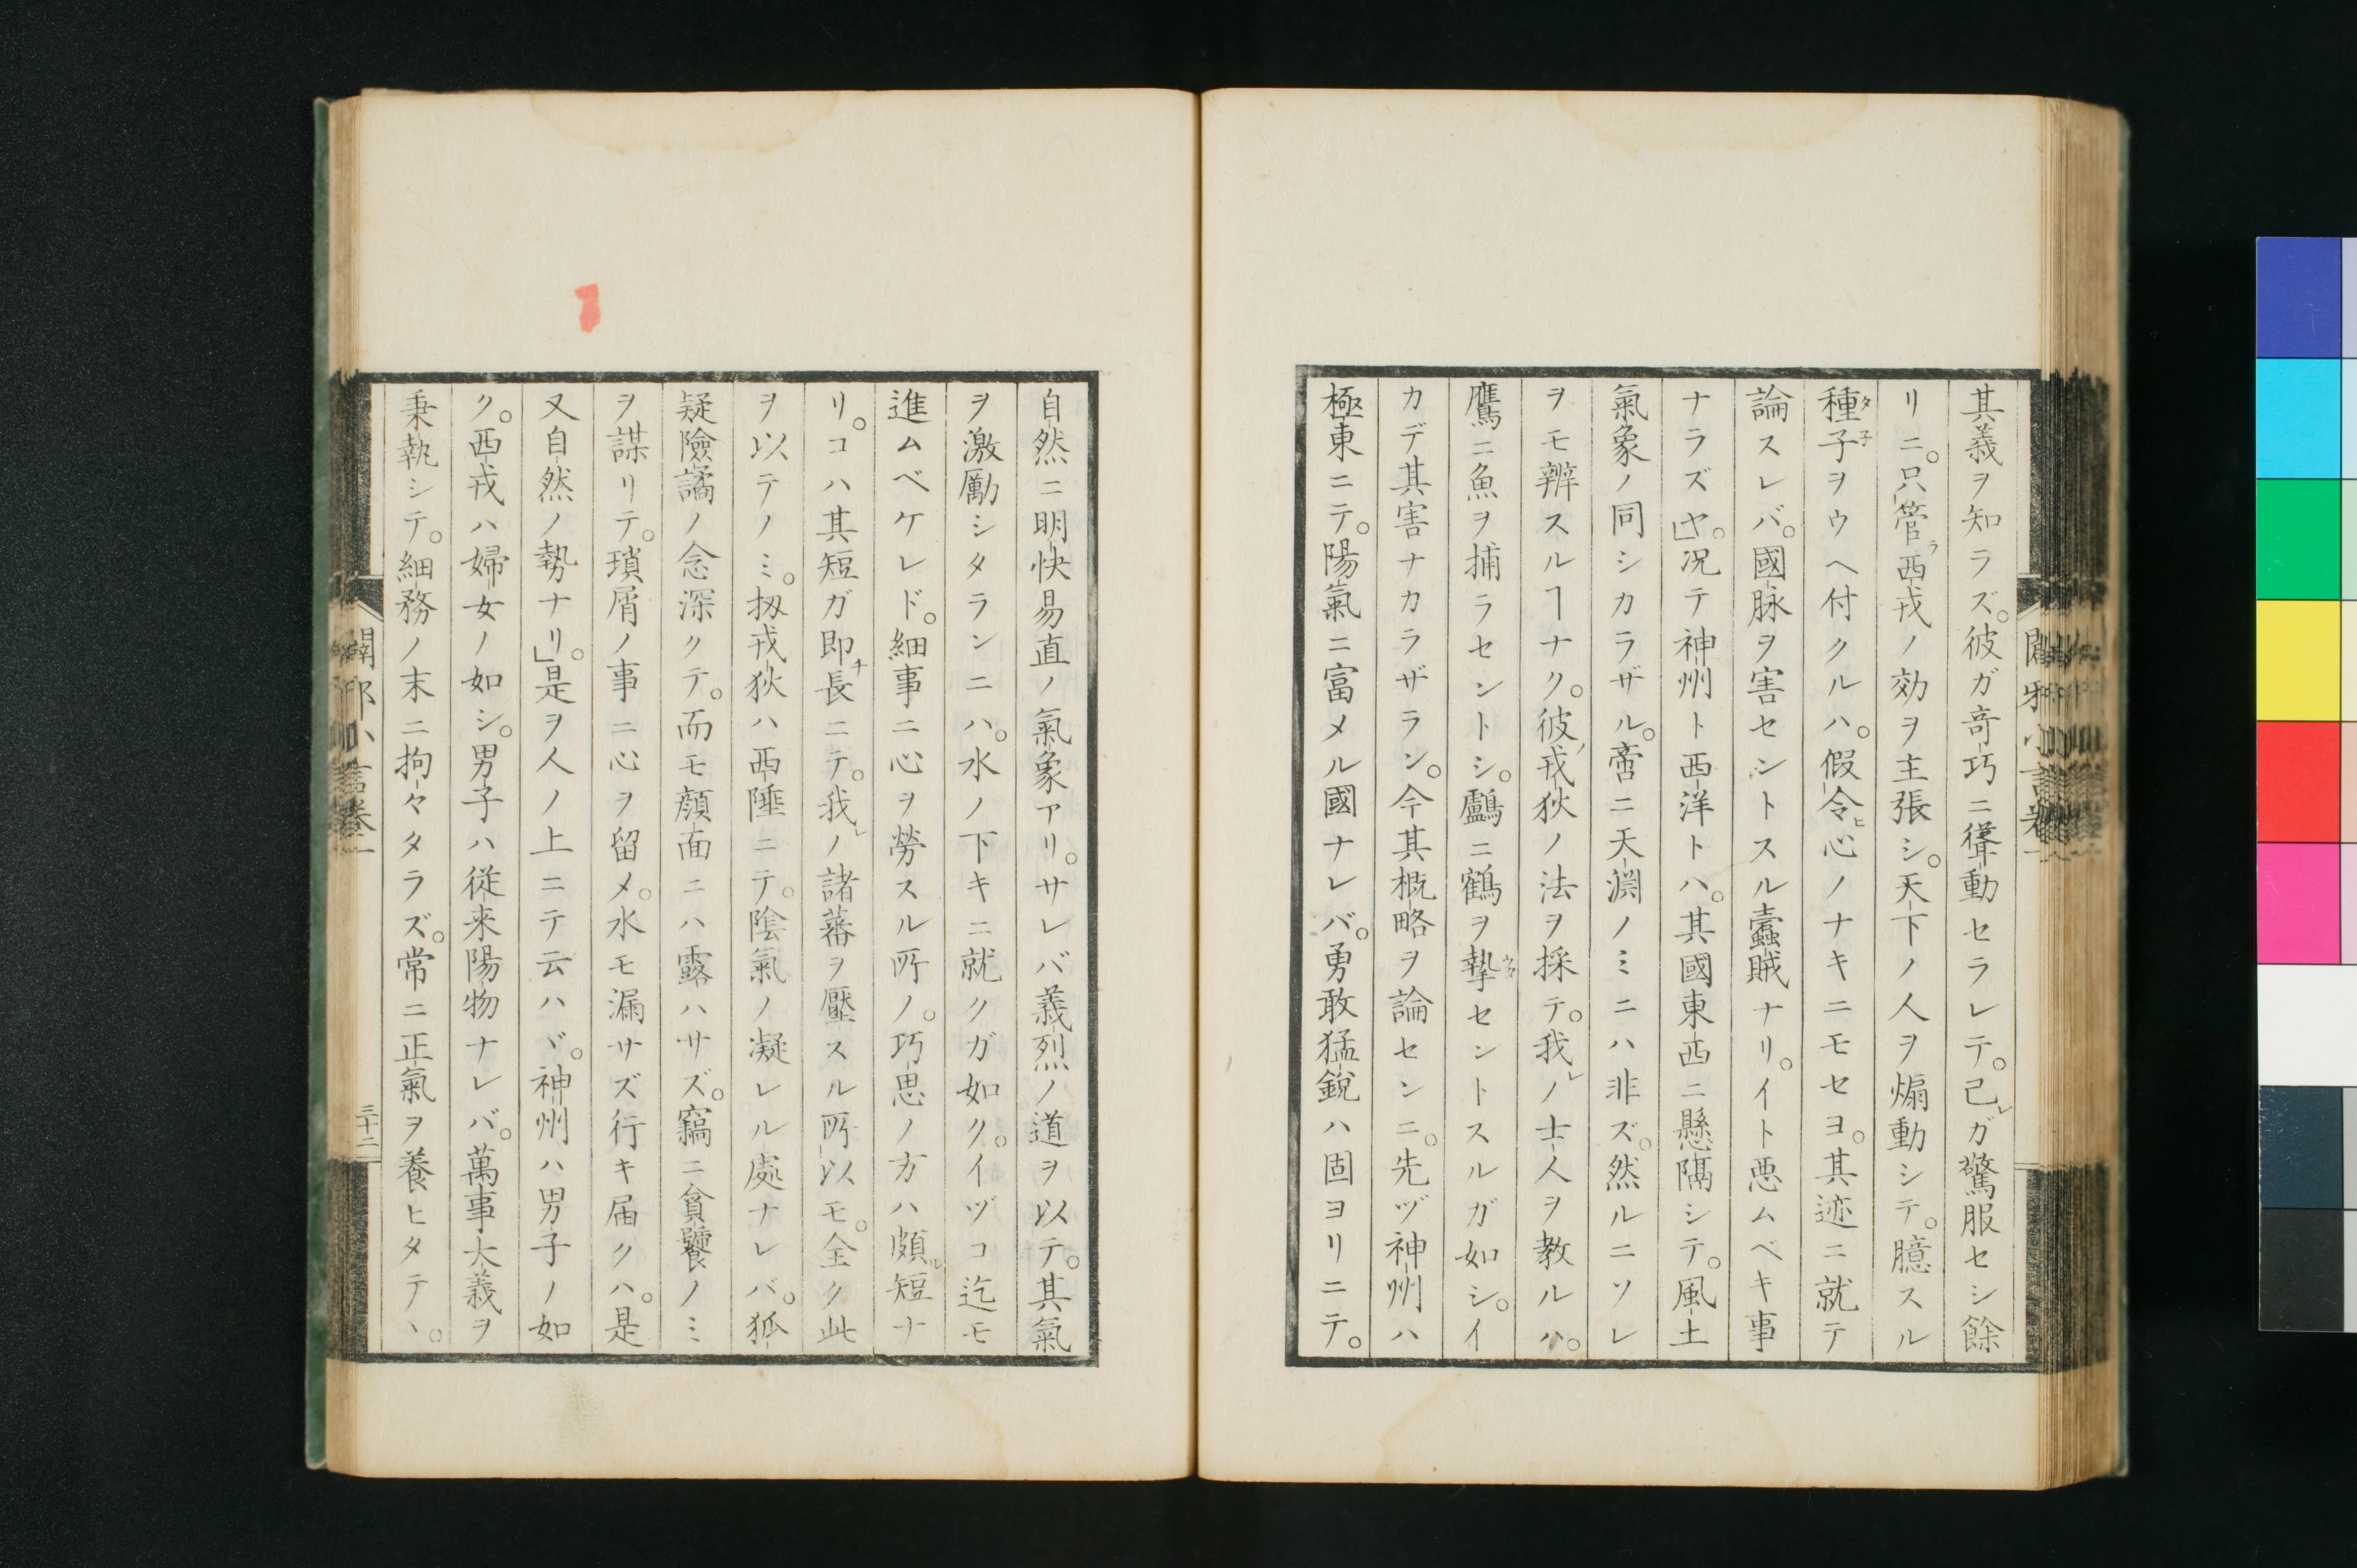 其義ヲ知ラズ。彼ガ奇巧ニ聳動セラレテ。己レガ驚服セシ餘
リニ。只管ラ西戎ノ効ヲ主張シ。天下ノ人ヲ煽動シテ。臆スル
種子ヲウヘ付クルハ。假令ヒ心ノナキニモセヨ。其迹ニ就テ
論スレバ。國脉ヲ害セントスル蠹賊ナリ。イト悪ムベキ事
ナラズヤ。」况テ神州ト西洋トハ。其國東西ニ懸隔シテ。風土
氣象ノ同シカラザル。啻ニ天淵ノミニハ非ズ。然ルニソレ
ヲモ辨スルヿナク。彼ノ戎狄ノ法ヲ採テ。我レノ士人ヲ教ルハ。
鷹ニ魚ヲ捕ラセントシ。鸕ニ鶴ヲ摯セントスルガ如シ。イ
カデ其害ナカラザラン。今其概略ヲ論センニ。先ヅ神州ハ
極東ニテ。陽氣ニ富メル國ナレバ。勇敢猛鋭ハ固ヨリニテ。
自然ニ明快易直ノ氣象アリ。サレバ義烈ノ道ヲ以テ。其氣
ヲ激勵シタランニハ。水ノ下キニ就クガ如ク。イヅコ迄モ
進ムベケレド。細事ニ心ヲ勞スル所ノ。巧思ノ方ハ頗ル短ナ
リ。コハ其短ガ即チ長ニテ。我レノ諸蕃ヲ壓スル所以モ。全ク此
ヲ以テノミ。扨戎狄ハ西陲ニテ。陰氣ノ凝レル處ナレバ。狐
疑險譎ノ念深クテ。而モ顏面ニハ露ハサズ。竊ニ貪饕ノミ
ヲ謀リテ。瑣屑ノ事ニ心ヲ留メ。水モ漏サズ行キ届クハ。是
又自然ノ勢ナリ。」是ヲ人ノ上ニテ云ハヾ。神州ハ男子ノ如
ク。西戎ハ婦女ノ如シ。男子ハ従来陽物ナレバ。萬事大義ヲ
秉執シテ。細務ノ末ニ拘々タラズ。常ニ正氣ヲ養ヒタテヽ。
闢邪小言卷一
三十二